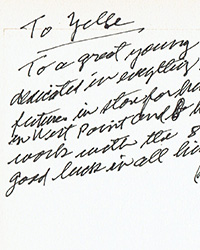 To Yelbe,
To a great young
dedicated in everything
future in store for
in West Point and
work with the 8
good luck in all